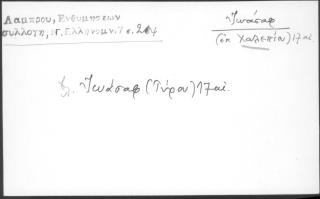 Λαμπρου, Ενθυμησεων
συλλογη, Ν. Ελληνομν. 7 σ. 204
Ἰωάσαφ
(ἐκ Χαλεπίου) 17 αἰ.
Ἰωάσαφ (Τύρου) 17 αἰ.